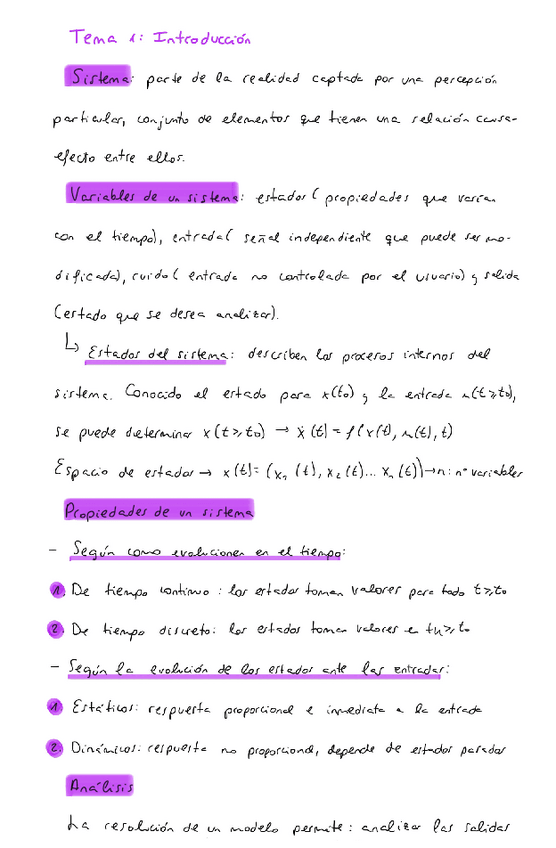 Tema 1: Introducción
Sistema: parte de la realidad captada por una percepción
particular, conjunto de elementos que tienen una relación causa-
efecto entre ellos.
Variables de un sistema: estados (propiedades que varían
con el tiempo), entrada (señal independiente que puede ser mo-
dificada), ruido (entrada no controlada por el usuario) y salida
(estado que se desea analizar).
↳ Estados del sistema: describen los procesos internos del
sistema. Conocido el estado para x(t₀) y la entrada u(t≥t₀),
se puede determinar x(t>t₀) → ẋ(t) = f(x(t), u(t), t)
Espacio de estados → x(t) = (x₁(t), x₂(t)... xₙ(t)) → n: nº variables
Propiedades de un sistema
- Según como evolucionen en el tiempo:
1. De tiempo continuo: los estados toman valores para todo t≥t₀
2. De tiempo discreto: los estados toman valores en tₖ≥t₀
- Según la evolución de los estados ante las entradas:
1. Estáticos: respuesta proporcional e inmediata a la entrada
2. Dinámicos: respuesta no proporcional, depende de estados pasados
Análisis
La resolución de un modelo permite: analizar las salidas